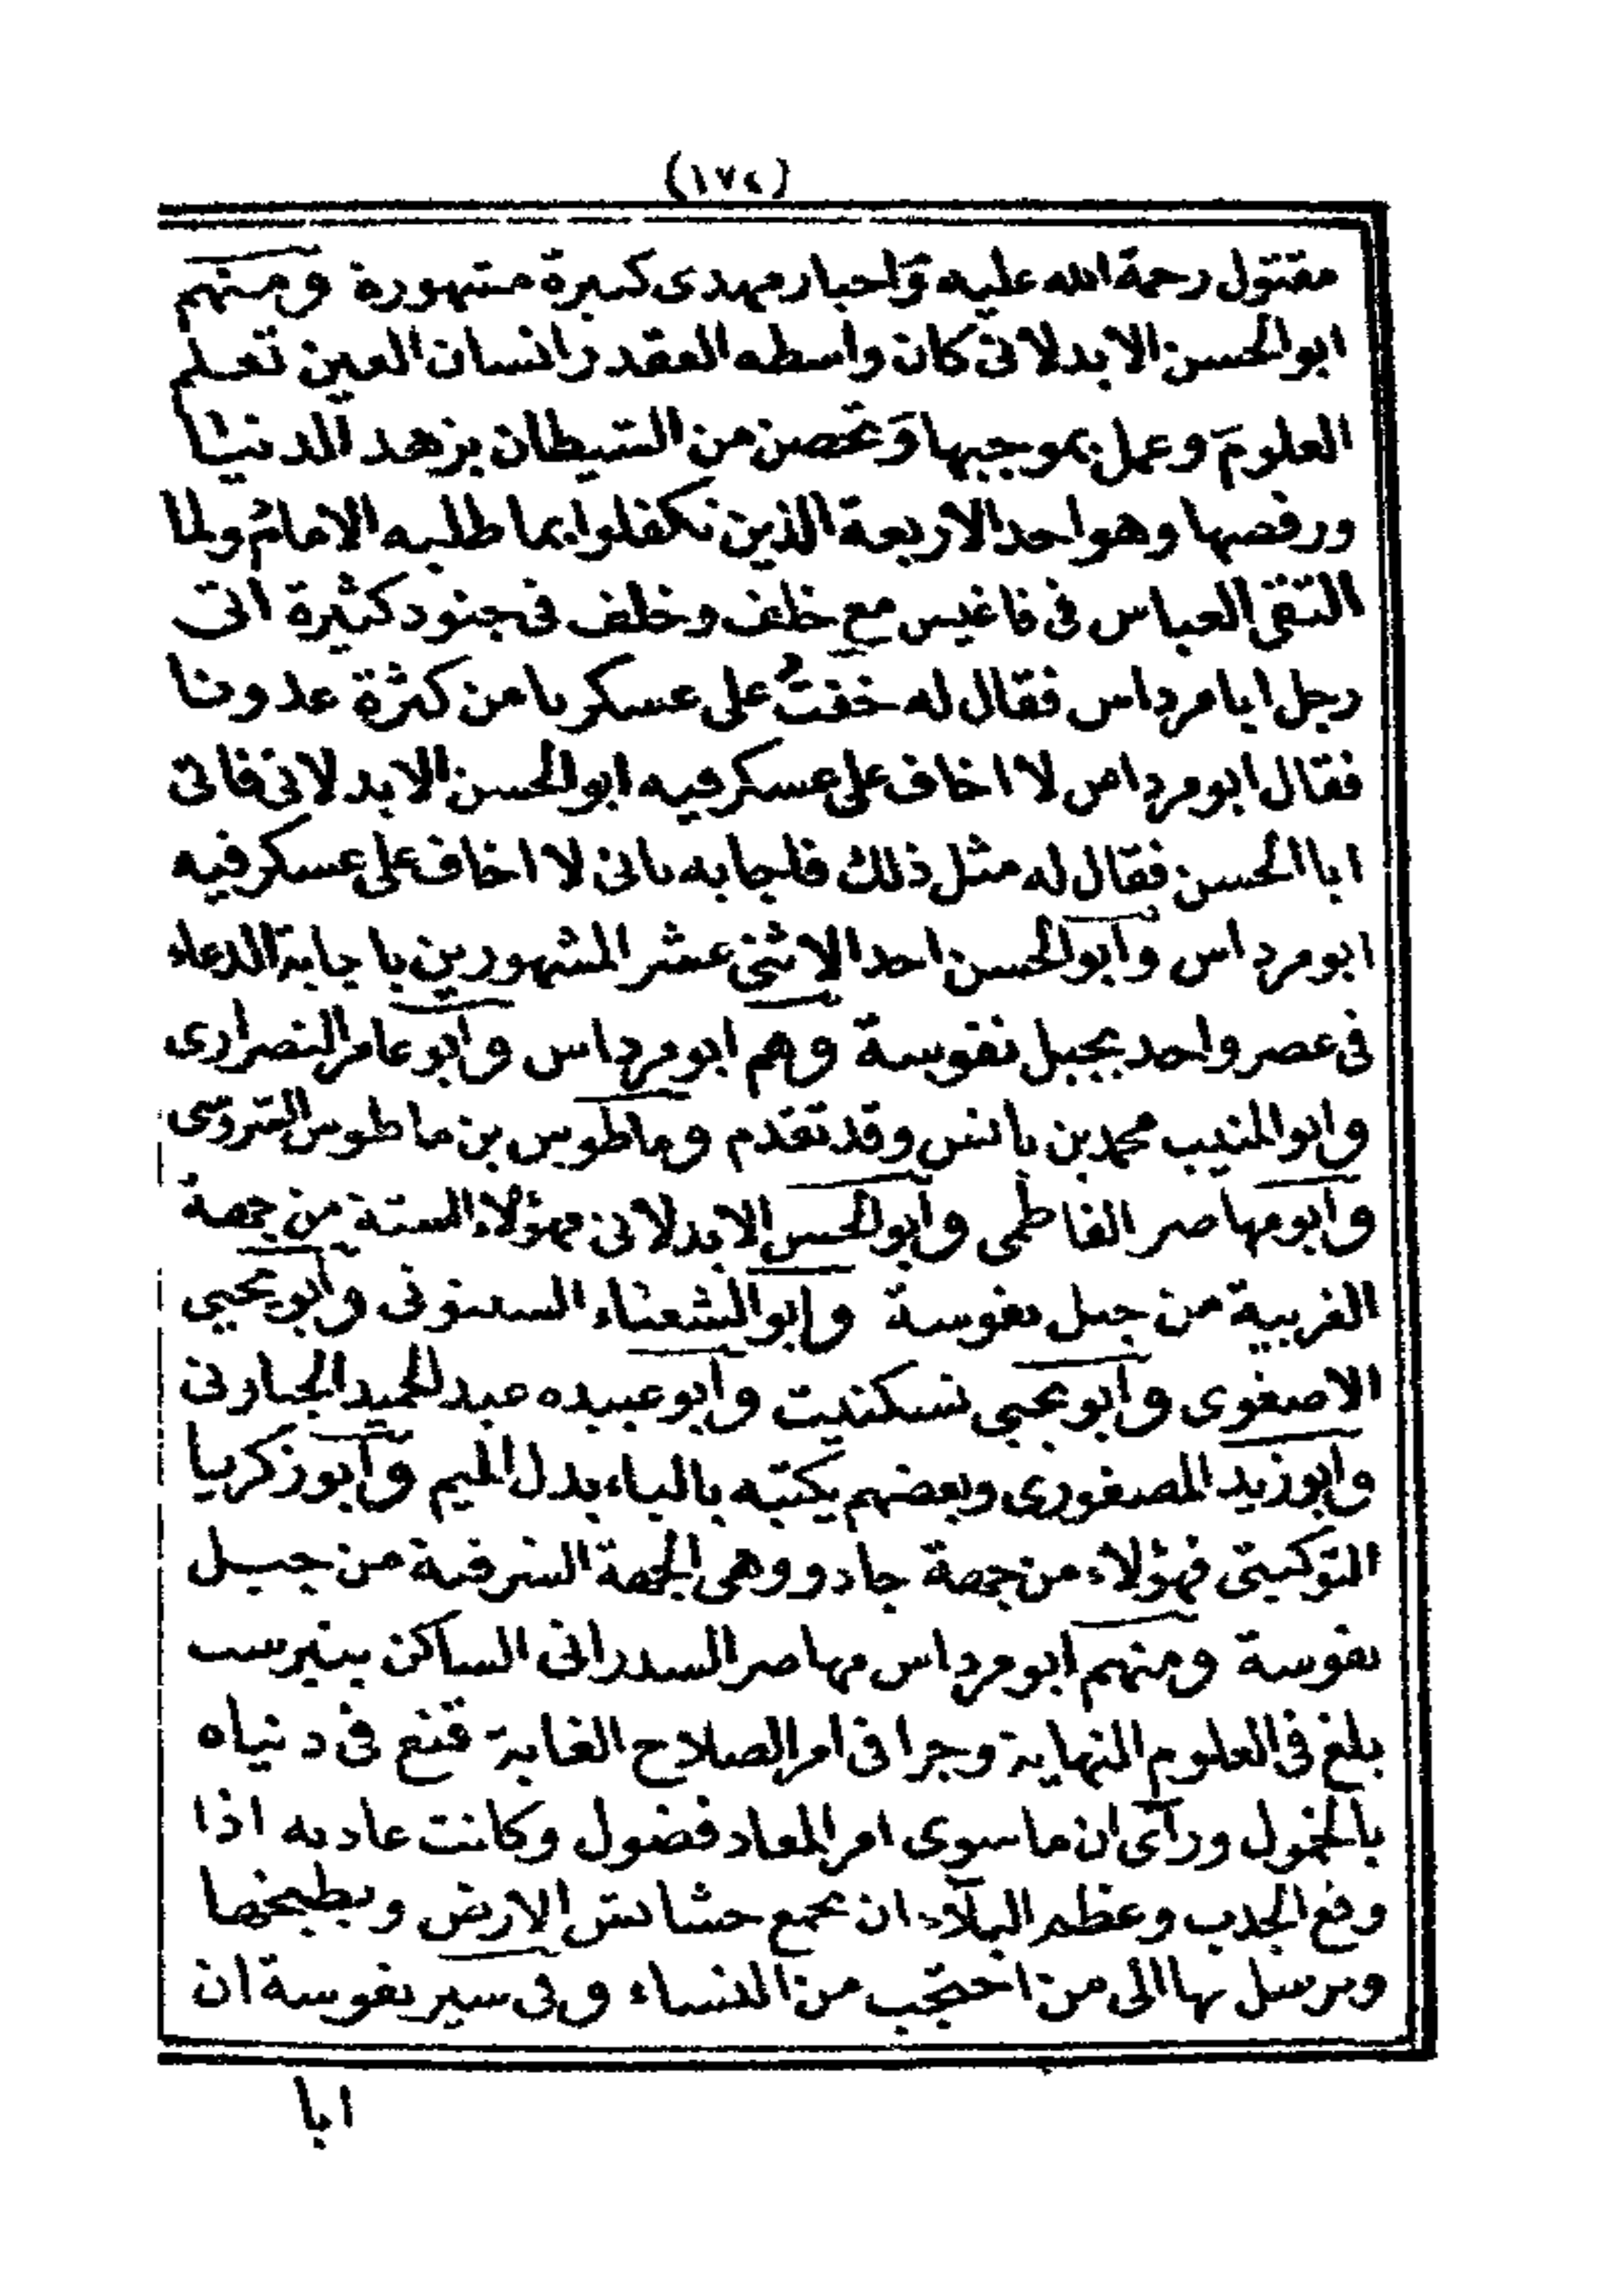 (١٧٤)
مقتول رحمة الله عليه واخبار مهدى كبيرة مشهورة ومنهم
ابو الحسن الابدلانى كان واسطه العقد وانسان العين تعلم
العلوم وعمل بموجبها وتحصن من الشيطان بزهد الدنيا
ورفضها وهو احد الاربعة الذين تكفلوا بما طلبه الامام ولما
التقى العباس فى فاغيس مع خلف وخلف فى جنود كثيرة اتى
رجل ابا مرداس فقال له خفت على عسكرنا من كثرة عدونا
فقال ابو مرداس لا اخاف على عسكر فيه ابو الحسن الابدلانى فاتى
ابا الحسن فقال له مثل ذلك فاجابه بانى لا اخاف على عسكر فيه
ابو مرداس وابو الحسن احد الاثنى عشر المشهورين باجابة الدعاء
فى عصر واحد بجبل نفوسة وهم ابو مرداس وابو عامر النصرارى
وابو المنيب محمد بن يانس وقد تقدم وماطوس بن ماطوس الشروسى
وابو مهاصر الفاطمى وابو الحسن الابدلانى فهؤلاء الستة من جهة
الغربية من جبل نفوسة وابو الشعثاء السنتوتى وابو يحيى
الاصغوى وابو يحيى تسكنيت وابو عبيده عبد الحميد الجنارنى
وابو زيد المصغورى وبعضهم يكتبه بالباء بدل الميم وابو زكريا
التوكيتى فهؤلاء من جهة جادو وهى الجهة الشرقية من جبل
نفوسة ومنهم ابو مرداس مهاصر السدراتى الساكن بتيرست
بلغ فى العلوم النهاية وجرا فى امر الصلاح الغاية قنع فى دنياه
بالخمول ورآى ان ما سوى امر المعاد فضول وكانت عادته اذا
وقع الجدب وعظم البلآء ان يجمع حشائش الارض ويطبخها
ويرسل بها الى من احتجب من النساء وفى سير نفوسة ان
ابا